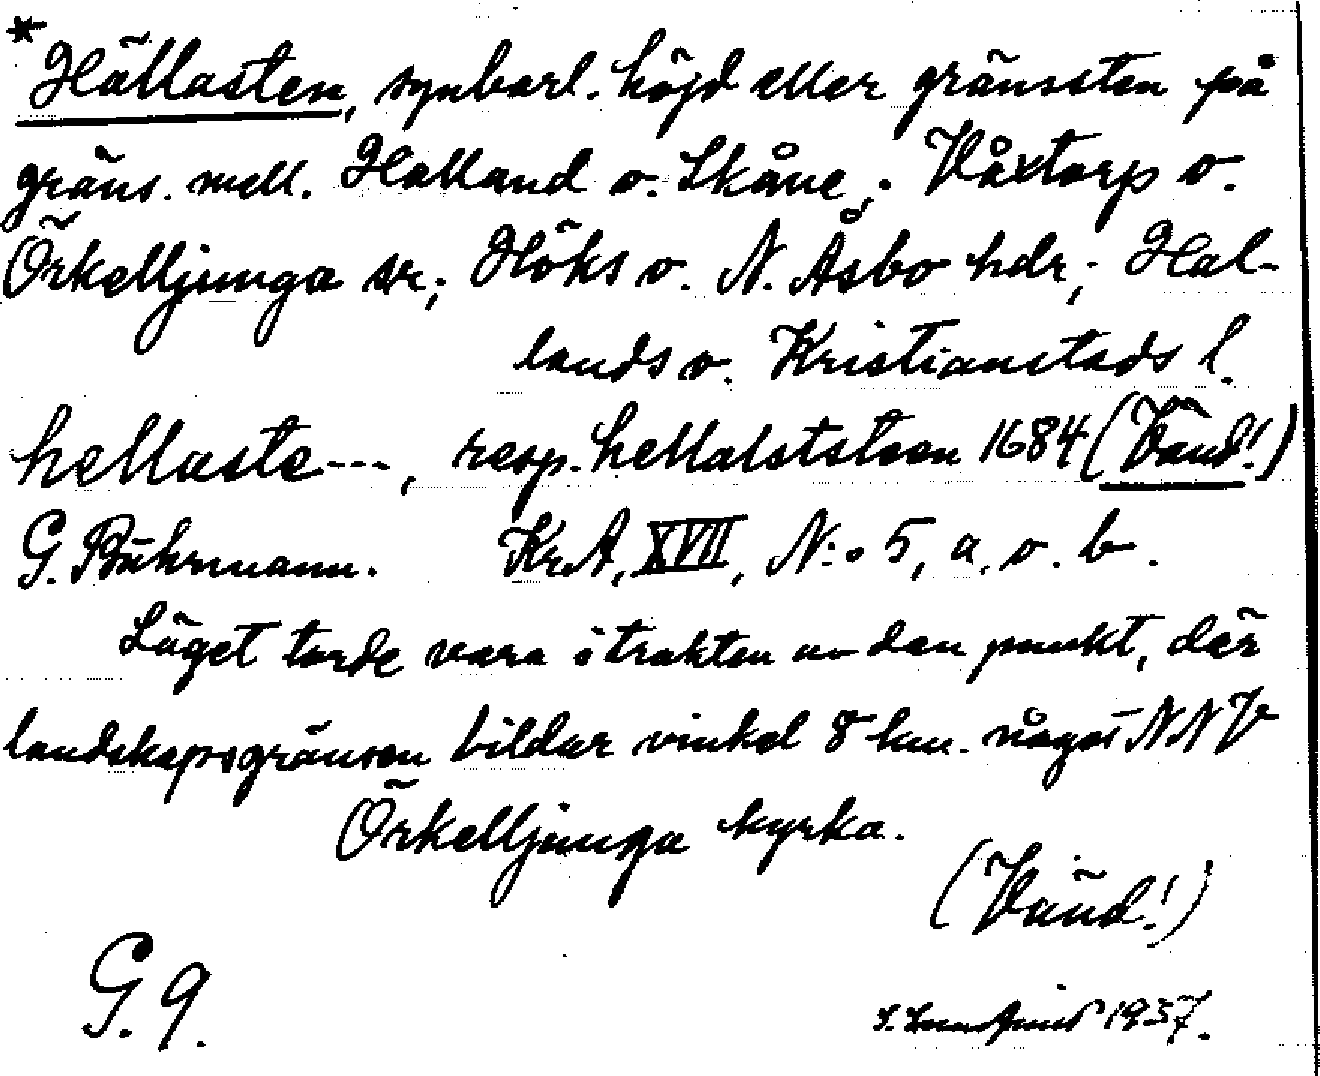 * Hällasten, synbarl. höjd eller gränssten på
gräns. mell. Halland o. Skåne; Våxtorp o.
Örkelljunga sr; Höks o. N. Åsbo hdr; Hal-
lands o. Kristianstads l.
hellaste---, resp. hellalststeen 1684 (Vänd!)
G. Buhrmann. KrA, XVII, N:o 5, a. o. b.
Läget torde vara i trakten av den punkt, där
landskapsgränsen bildar vinkel 8 km. något NNV
Örkelljunga kyrka.
(Vänd!)
G. 9.
1937.